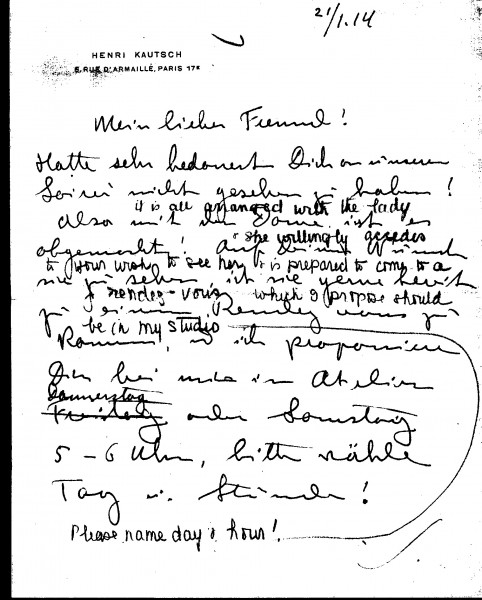 21/1.14
HENRI KAUTSCH
5, RUE D'ARMAILLÉ, PARIS 17e
Mein lieber Freund!
Hatte sehr bedauert Dich an unserer
Soirée nicht gesehen zu haben!
it is all arranged with the lady
Also mit der Dame ist es
& she willingly accedes
abgemacht! Auf Deinen Wunsch
to your wish to see her & is prepared to come to a
sie zu sehen ist sie gerne bereit
rendez-vous which I propose should
zu einem Rendez vous zu
be in my studio
kommen, u ich proponiere
Dir bei mir im Atelier
Donnerstag
Freitag oder Samstag
5 - 6 Uhr, bitte wähle
Tag u. Stunde!
Please name day & hour!